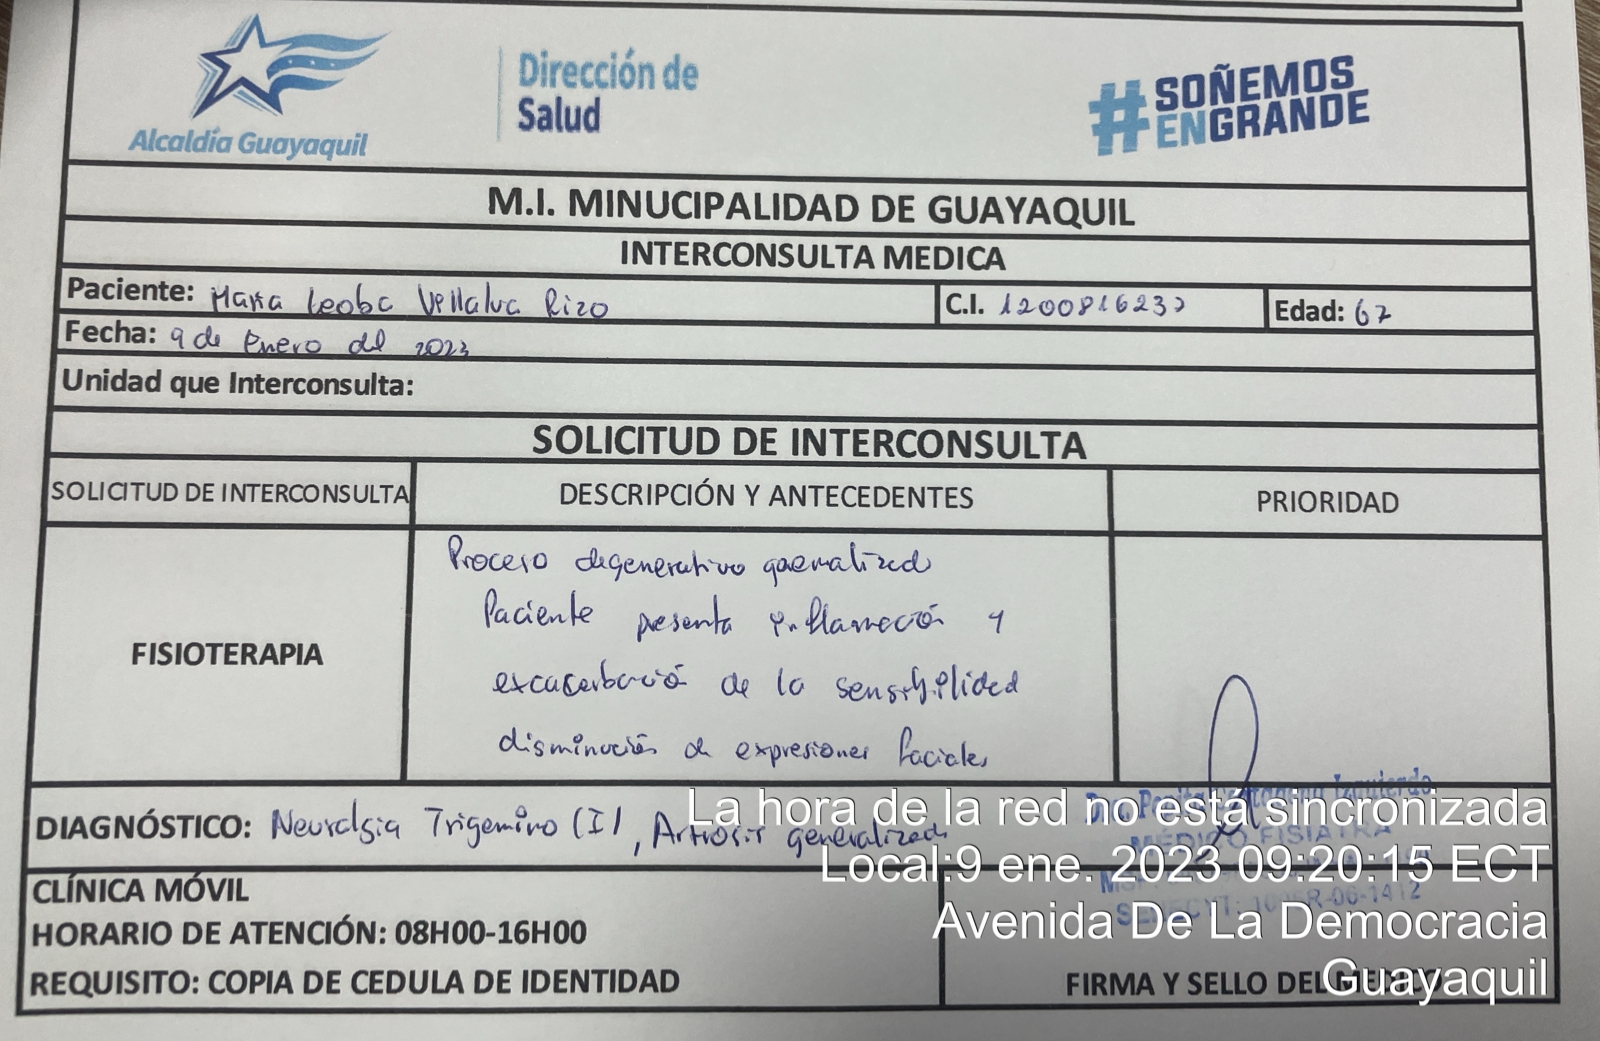 Alcaldía Guayaquil
Dirección de
Salud
#SOÑEMOS
ENGRANDE
M.I. MINUCIPALIDAD DE GUAYAQUIL
INTERCONSULTA MEDICA
Paciente: Maria Leoba Villalva Rizo C.I. 1200816237 Edad: 67
Fecha: 9 de Enero del 2023
Unidad que Interconsulta:
SOLICITUD DE INTERCONSULTA
SOLICITUD DE INTERCONSULTA DESCRIPCIÓN Y ANTECEDENTES PRIORIDAD
Proceso degenerativo generalizado
Paciente presenta inflamación y
FISIOTERAPIA
excacerbación de la sensibilidad
disminución de expresiones faciales
DIAGNÓSTICO: Neuralgia Trigemino (I), Artrosis generalizada
MÉDICO FISIATRA
CLÍNICA MÓVIL
HORARIO DE ATENCIÓN: 08H00-16H00
REQUISITO: COPIA DE CEDULA DE IDENTIDAD
FIRMA Y SELLO DEL MEDICO
La hora de la red no está sincronizada
Local:9 ene. 2023 09:20:15 ECT
Avenida De La Democracia
Guayaquil